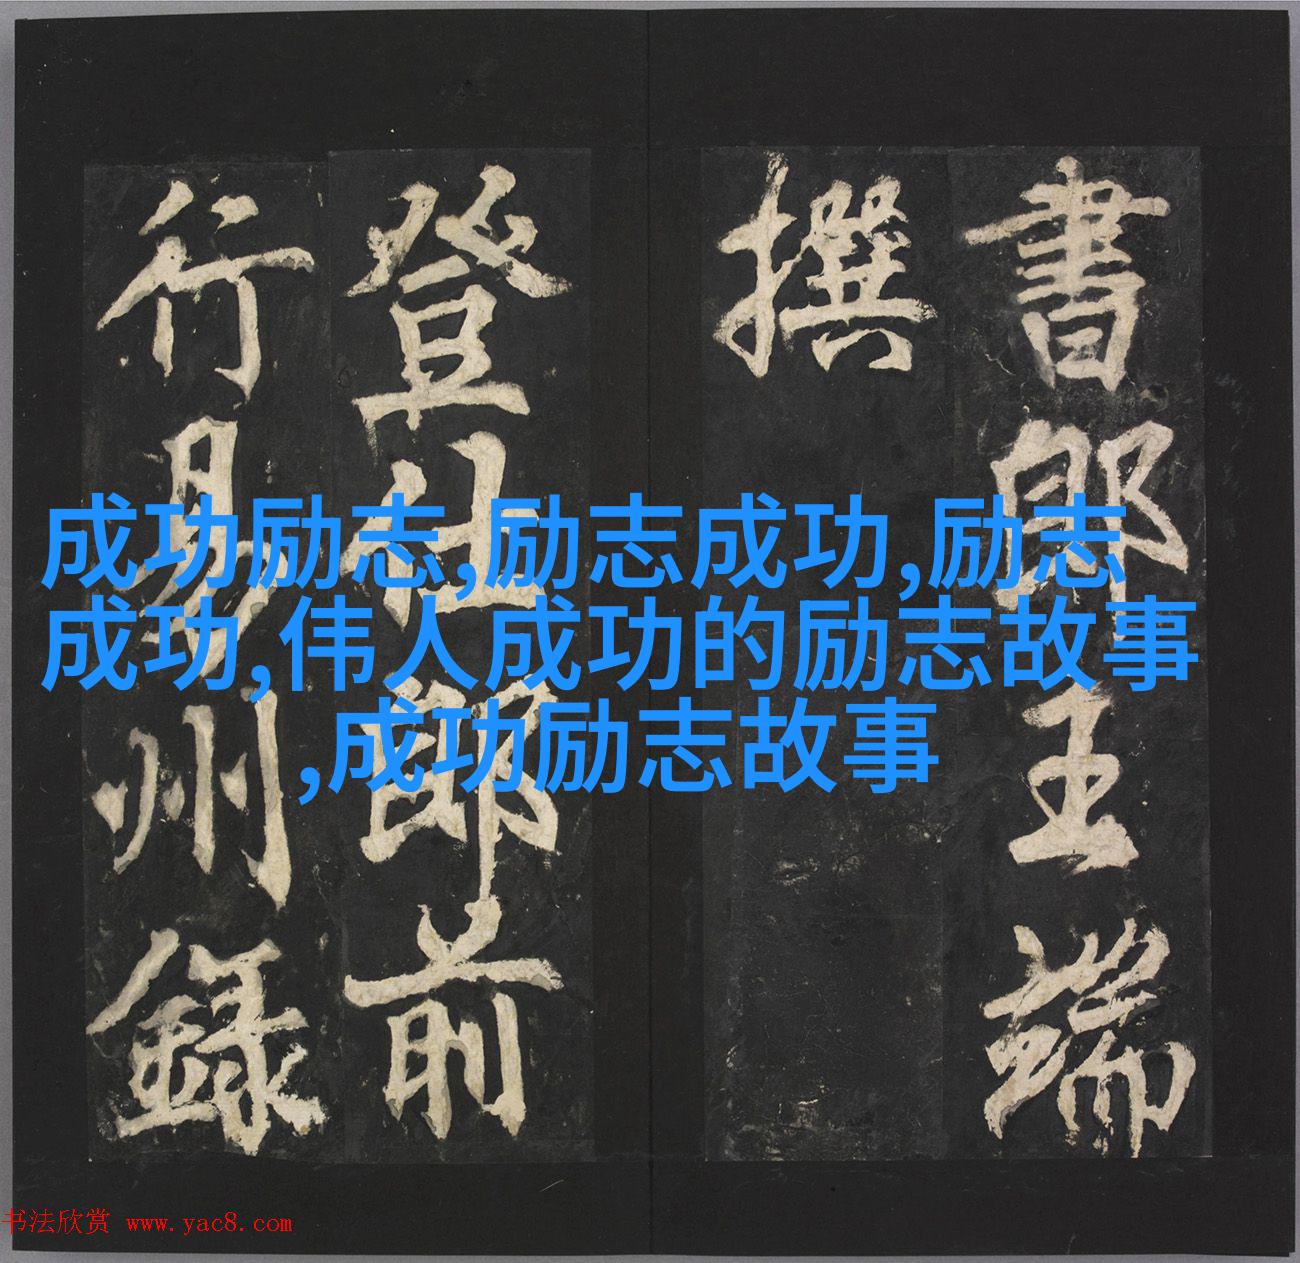 書郎王端
撰
登仕郎前
行易州録
成功励志,励志成功,励志
成功,伟人成功的励志故事
,成功励志故事
书法欣赏 www.yac8.com